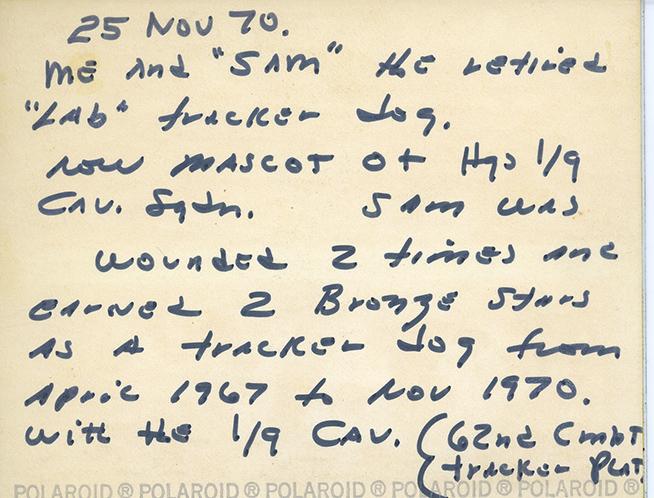 25 Nov 70.
me and "SAm" the retired
"LAb" tracker dog.
now mascot of Hqs 1/9
CAV. Sqdn. SAm was
wounded 2 times and
earned 2 Bronze Stars
as a tracker dog from
April 1967 to Nov 1970.
with the 1/9 CAV. (62nd Cmbt
tracker Plat
POLAROID ® POLAROID ® POLAROID ® POLAROID ® POLAROID ®